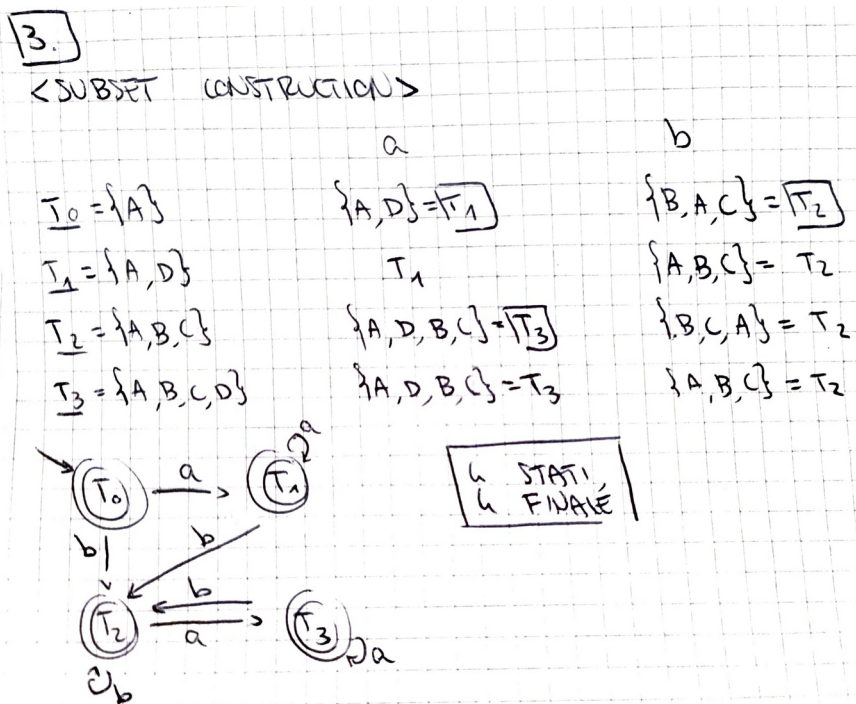 3.
<SUBSET CONSTRUCTION>
a b
T0 = {A} {A, D} = T1 {B, A, C} = T2
T1 = {A, D} T1 {A, B, C} = T2
T2 = {A, B, C} {A, D, B, C} = T3 {B, C, A} = T2
T3 = {A, B, C, D} {A, D, B, C} = T3 {A, B, C} = T2
a
T0 a T1
4 STATI,
4 FINALE
b b
b
T2 a T3
a
b